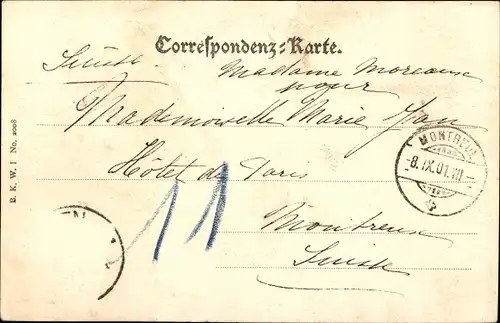 Correspondenz-Karte.
Suisse.
Madame Moreau
pour
Mademoiselle Marie
Hôtel de Paris
Montreux
Suisse
11
MONTREUX
-8.IX.01.VII-
B. K. W. I No. 2008